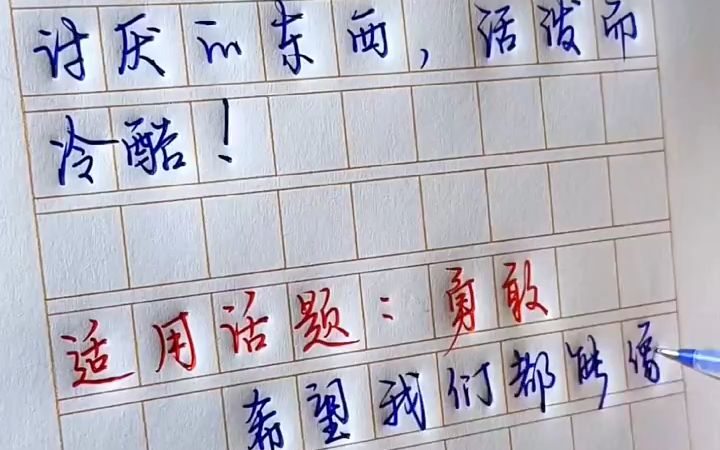 讨厌的东西，活泼而
冷酷！
适用话题：勇敢
希望我们都能像